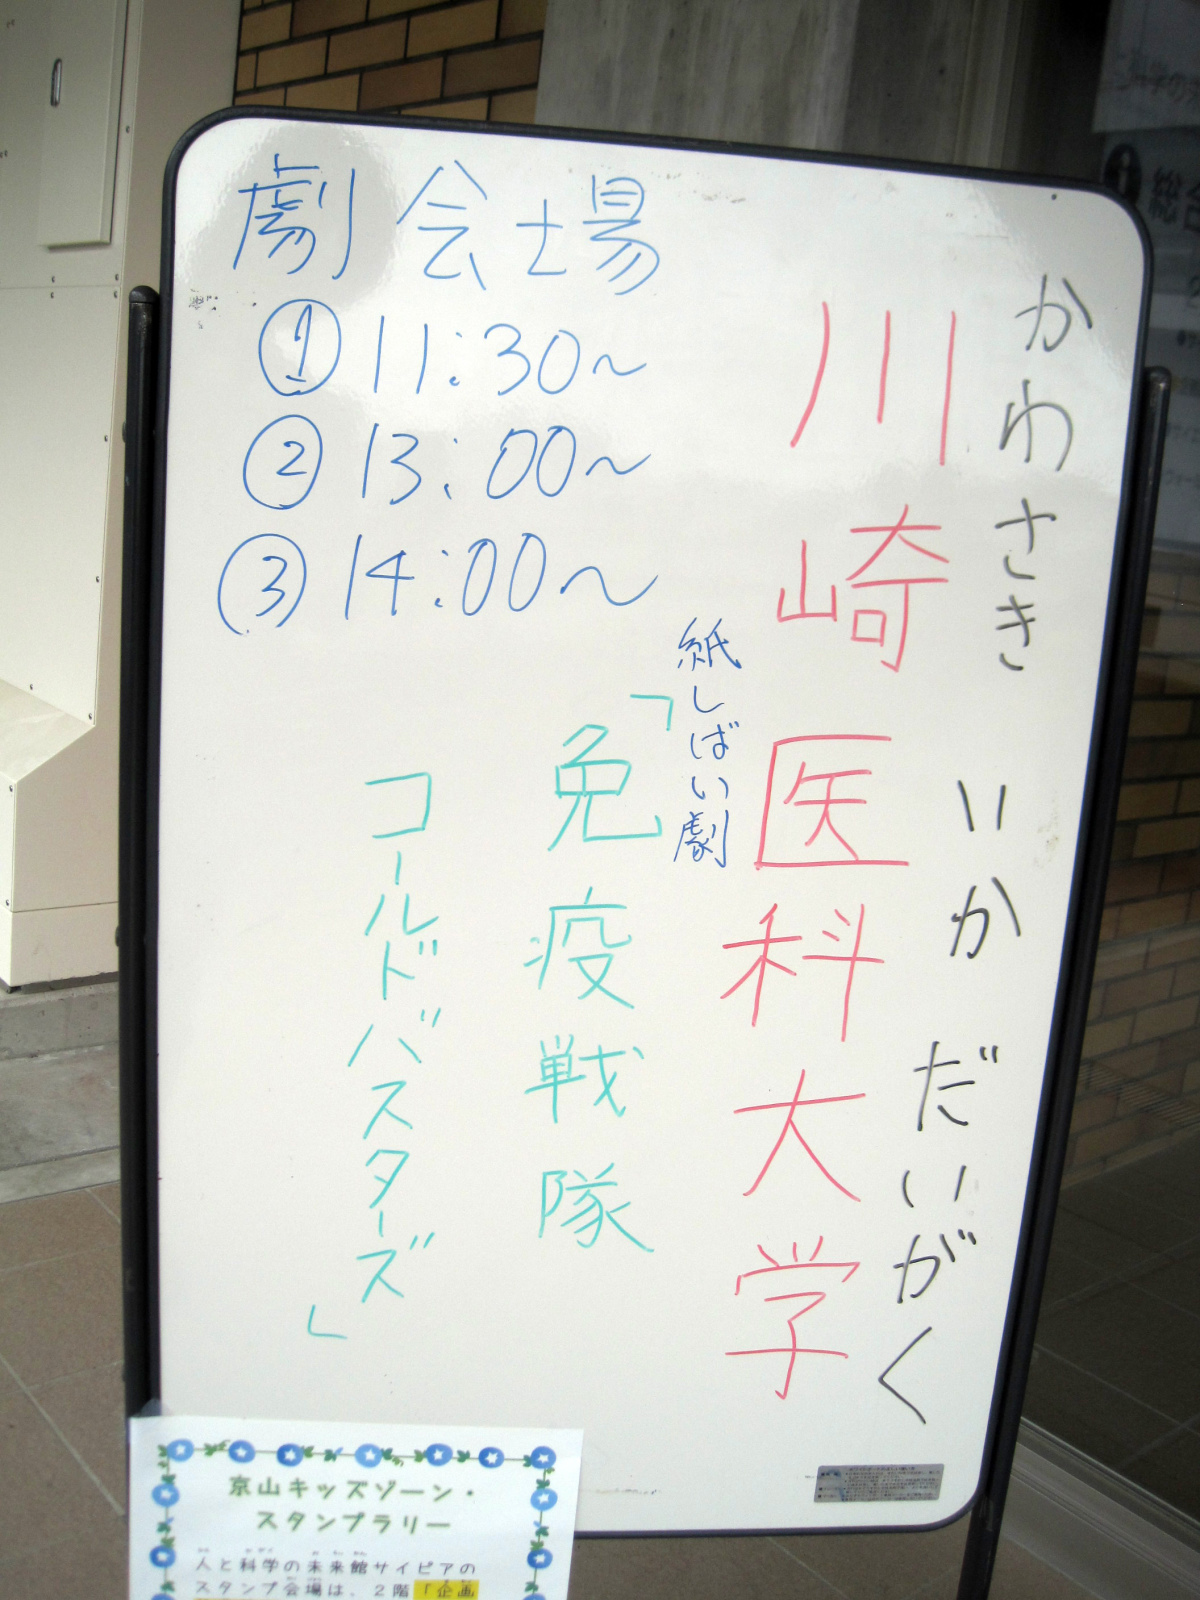 劇会場
①11:30〜
②13:00〜
③14:00〜
かわさき いか だいがく
川崎医科大学
紙しばい劇
「免疫戦隊
コールドバスターズ」
京山キッズゾーン・
スタンプラリー
人と科学の未来館サイピアの
スタンプ会場は、2階「企画